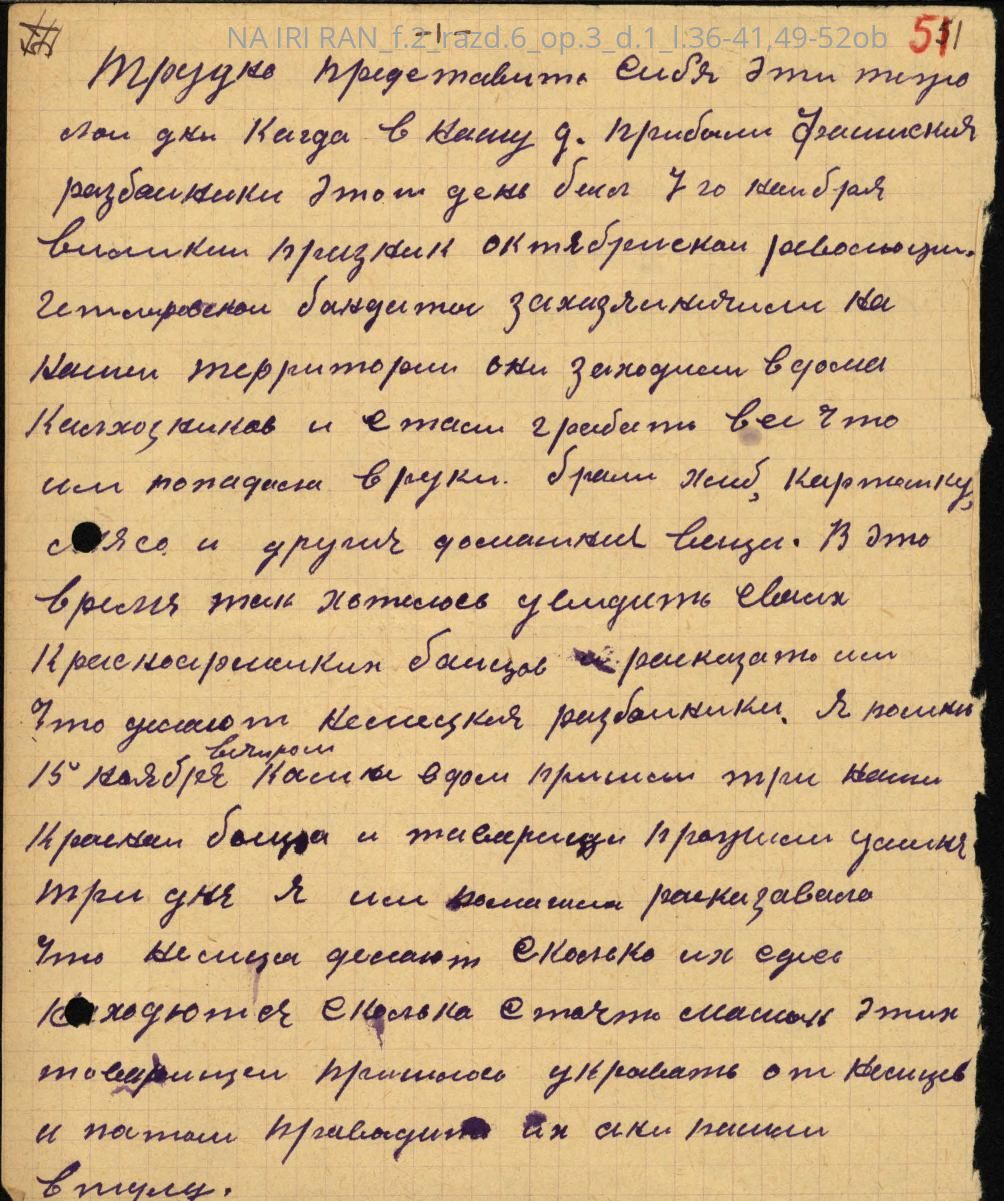 NA IRI RAN_f.2_razd.6_op.3_d.1_l.36-41,49-52ob
-1-
51 51
Трудно представить Сибя эти тяжо
лаи дни Кагда в нашу д. прибыли Фашиския
разбаиники этот день был 7 го наября
виликии празник октябрискаи револющи.
гетлеровскаи бандиты захазяиничили на
нашеи территории они заходили в дома
Калхозников и стали грабить все что
им попадала в руки. брали хлеб, картошку,
мясо и другия домашнии вещи. В это
время так хотелось увидить своих
Красноармииких баицов и расказать им
что делают немецкия разбаиники. Я помню
вечиром
15 ноября Камне в дом пришли три наши
Краснаи боица и таварищи пражили уминя
три дня Я им расказавала
что немца делают Сколько их сдесь
находются Сколька стоять машин этих
товарищеи пришлось укравать от немцев
и патом праводить их ани пашли
в тулу.